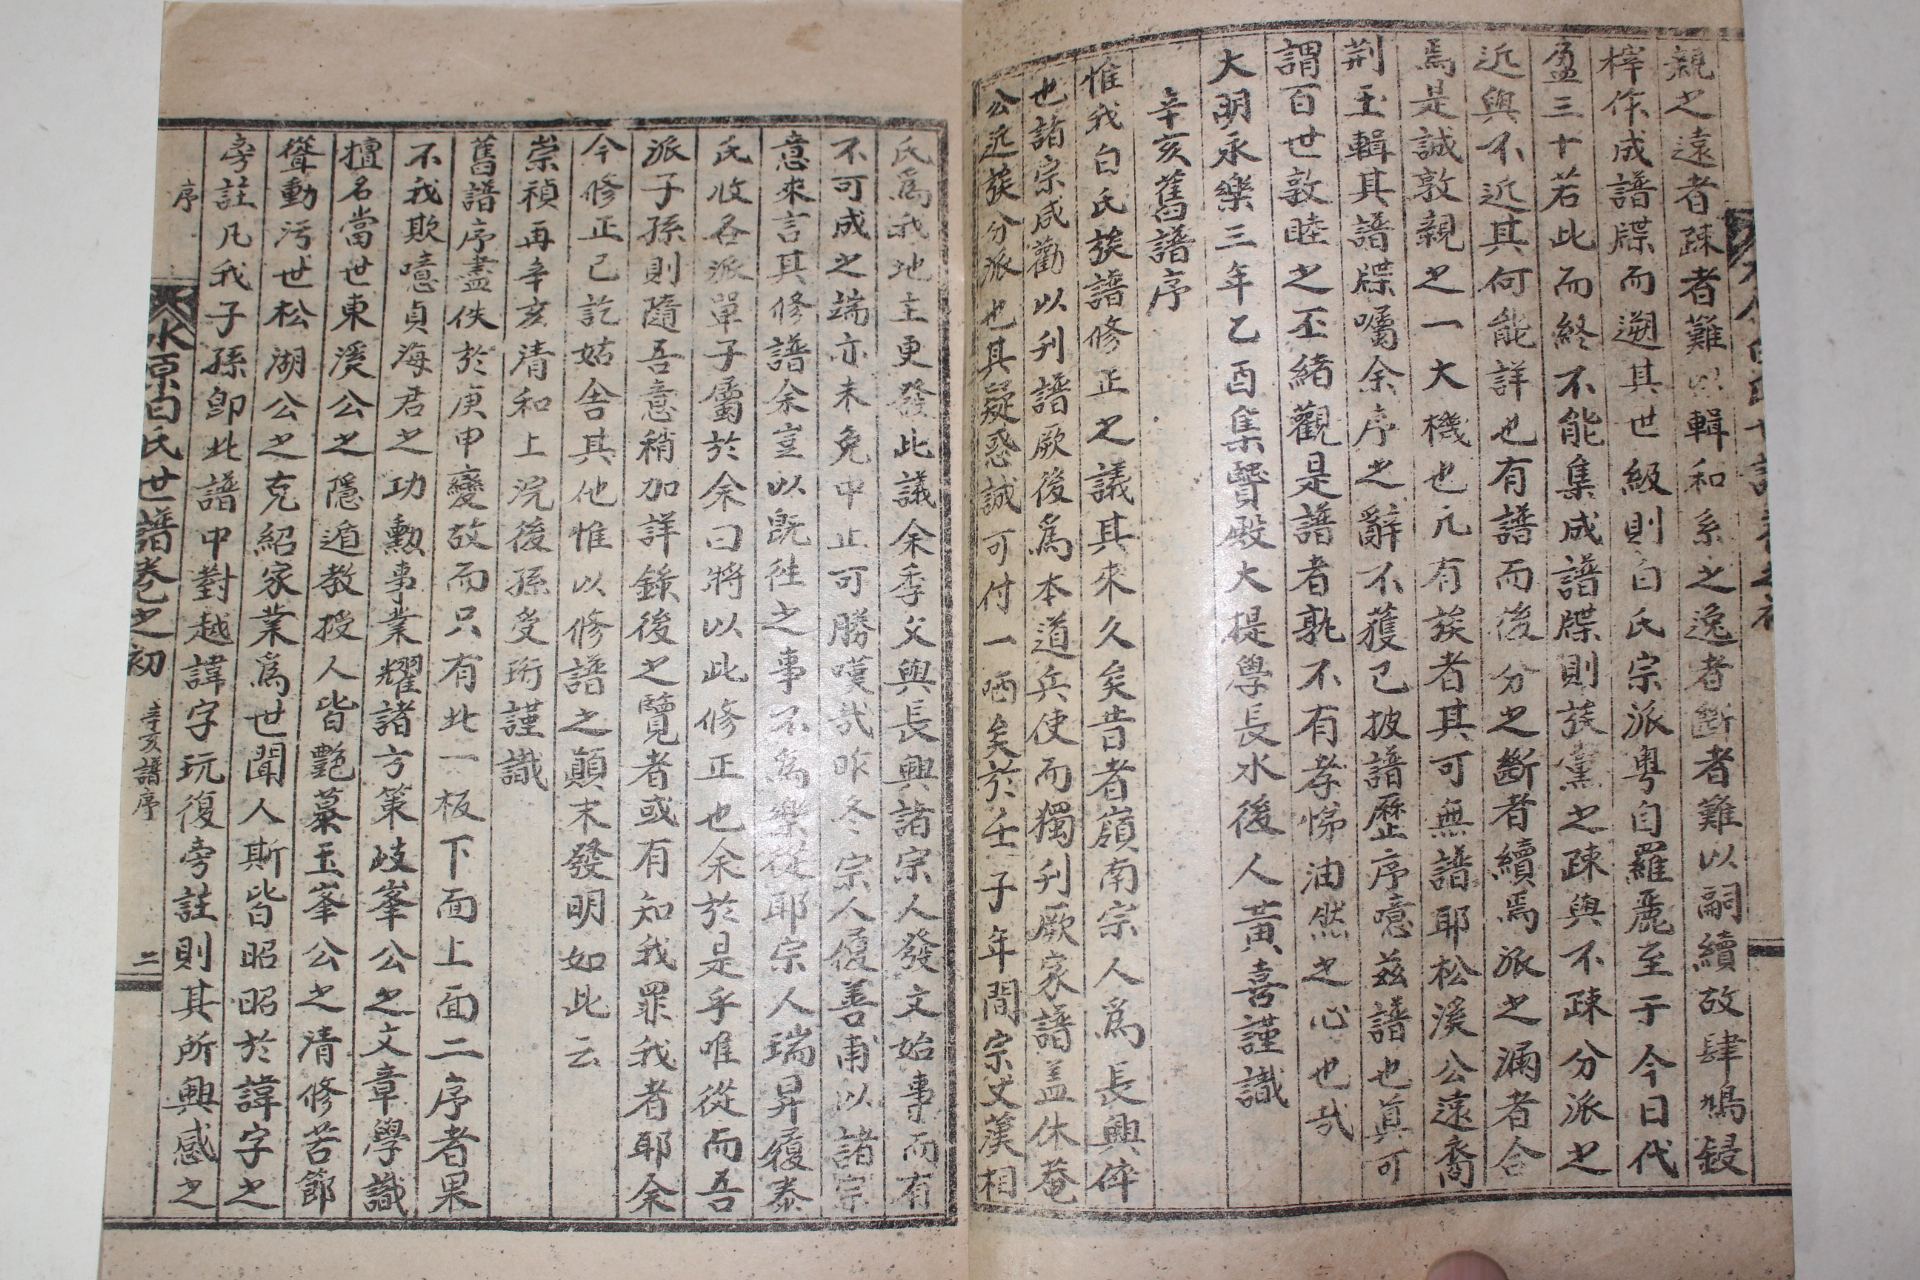 親之遠者疎者難以輯和系之逸者斷者難以嗣續故肆鳩錄
梓作成譜牒而遡其世級則白氏宗派粤自羅麗至于今日代
盈三十若此而終不能集成譜牒則蔟黨之疎與不疎分派之
近與不近其何能詳也有譜而後分之斷者續焉派之漏者合
焉是誠敦親之一大機也凢有族者其可無譜耶松溪公遠裔
荆玉輯其譜牒囑余序之辭不獲已披譜歷序噫玆譜也眞可
謂百世敦睦之丕緒觀是譜者孰不有孝悌油然之心也㢤
大明永樂三年乙酉集賢殿大提學長水後人黃喜謹識
辛亥舊譜序
惟我白氏族譜修正之議其來久矣昔者嶺南宗人爲長興倅
也諸宗咸勸以刋譜厥後爲本道兵使而獨刋厥家譜盖休菴
公近蔟分派也其疑惑誠可付一哂矣於壬子年間宗丈漢相
氏爲我地主更發此議余季父與長興諸宗人發文始事而有
不可成之端亦未免中止可勝嘆㢤昨冬宗人復善甫以諸宗
意來言其修譜余豈以旣往之事不爲樂從耶宗人瑞昇履泰
氏收各派單子屬於余曰將以此修正也余於是乎唯從而吾
派子孫則隨吾意稍加詳錄後之覽者或有知我罪我者耶余
今修正已訖姑舍其他惟以修譜之顚末發明如此云
崇禎再辛亥清和上浣後孫受珩謹識
舊譜序盡佚於庚申變故而只有此一板下面上面二序者果
不我欺噫貞海君之功勳事業耀諸方策岐峯公之文章學識
擅名當世東溪公之隱遁教授人皆艶慕玉峯公之清修苦節
聳動汚世松湖公之克紹家業爲世聞人斯皆昭昭於諱字之
旁註凡我子孫卽此譜中對越諱字玩復旁註則其所興感之
序
水原白氏世譜卷之初 辛亥譜序 二